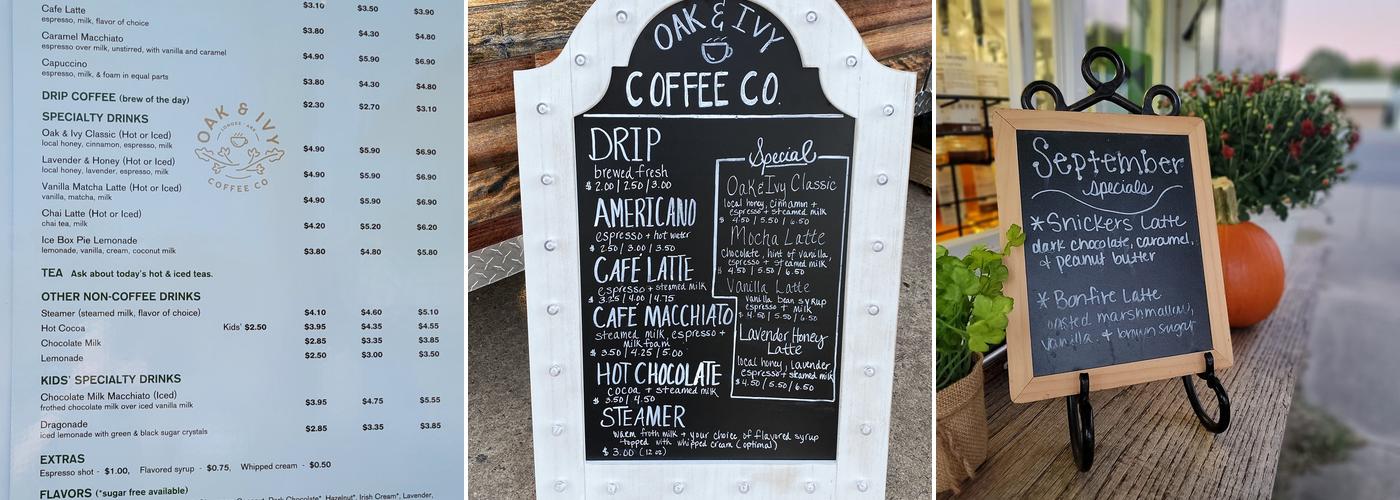 $3.10 $3.50 $3.90
Cafe Latte
espresso, milk, flavor of choice
$3.80 $4.30 $4.80
Caramel Macchiato
espresso over milk, unstirred, with vanilla and caramel
$4.90 $5.90 $6.90
Capuccino
espresso, milk, & foam in equal parts
$3.80 $4.30 $4.80
DRIP COFFEE (brew of the day)
$2.30 $2.70 $3.10
SPECIALTY DRINKS
OAK & IVY
COFFEE CO
Oak & Ivy Classic (Hot or Iced)
local honey, cinnamon, espresso, milk
$4.90 $5.90 $6.90
Lavender & Honey (Hot or Iced)
local honey, lavender, espresso, milk
$4.90 $5.90 $6.90
Vanilla Matcha Latte (Hot or Iced)
vanilla, matcha, milk
$4.90 $5.90 $6.90
Chai Latte (Hot or Iced)
chai tea, milk
$4.20 $5.20 $6.20
Ice Box Pie Lemonade
lemonade, vanilla, cream, coconut milk
$3.80 $4.80 $5.80
TEA Ask about today's hot & iced teas.
OTHER NON-COFFEE DRINKS
Steamer (steamed milk, flavor of choice) $4.10 $4.60 $5.10
Hot Cocoa Kids' $2.50 $3.95 $4.35 $4.55
Chocolate Milk $2.85 $3.35 $3.85
Lemonade $2.50 $3.00 $3.50
KIDS' SPECIALTY DRINKS
Chocolate Milk Macchiato (Iced)
frothed chocolate milk over iced vanilla milk
$3.95 $4.75 $5.55
Dragonade
iced lemonade with green & black sugar crystals
$2.85 $3.35 $3.85
EXTRAS
Espresso shot - $1.00, Flavored syrup - $0.75, Whipped cream - $0.50
FLAVORS (*sugar free available)
Dark Chocolate*, Hazelnut*, Irish Cream*, Lavender,
OAK & IVY
COFFEE CO.
DRIP
brewed fresh
$2.00 / 2.50 / 3.00
AMERICANO
espresso + hot water
$2.50 / 3.00 / 3.50
CAFÉ LATTE
espresso + steamed milk
$3.25 / 4.00 / 4.75
CAFE MACCHIATO
steamed milk, espresso +
milk foam
$3.50 / 4.25 / 5.00
HOT CHOCOLATE
cocoa + steamed milk
$3.50 / 4.50
STEAMER
warm froth milk + your choice of flavored syrup
topped with whipped cream (optional)
$3.00 (12 oz)
Special
Oak & Ivy Classic
local honey, cinnamon +
espresso + steamed milk
$4.50 / 5.50 / 6.50
Mocha Latte
chocolate, hint of vanilla,
espresso + steamed milk
$4.50 / 5.50 / 6.50
Vanilla Latte
vanilla bean syrup
espresso + milk
$4.50 / 5.50 / 6.50
Lavender Honey
Latte
local honey, lavender
espresso + steamed milk
$4.50 / 5.50 / 6.50
September
specials
*Snickers Latte
dark chocolate, caramel,
& peanut butter
*Bonfire Latte
toasted marshmallow,
vanilla, & brown sugar